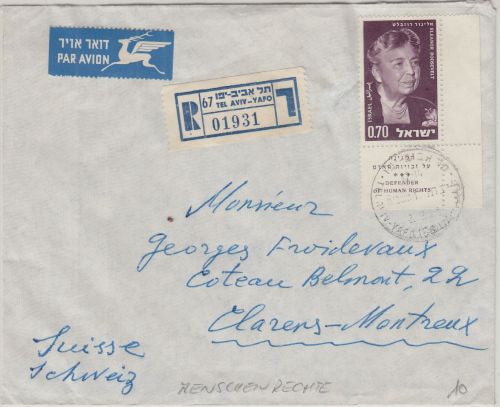 דואר אויר
PAR AVION
R
67
תל אביב-יפו
TEL AVIV-YAFO
ר
01931
אלינור רוזבלט
ELEANOR ROOSEVELT
ISRAEL
0.70
ישראל
על זכויות האדם
DEFENDER
OF HUMAN RIGHTS
Monsieur
Georges Froidevaux
Coteau Belmont, 22
Clarens-Montreux
Suisse
Schweiz
MENSCHENRECHTE
10